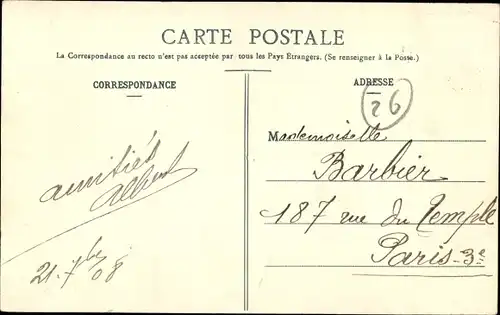 CARTE POSTALE
La Correspondance au recto n'est pas acceptée par tous les Pays Étrangers. (Se renseigner à la Poste.)
CORRESPONDANCE
ADRESSE
26
Mademoiselle
Barbier
187 rue du Temple
Paris-3e
amitiés
Albert
21-7bre 08